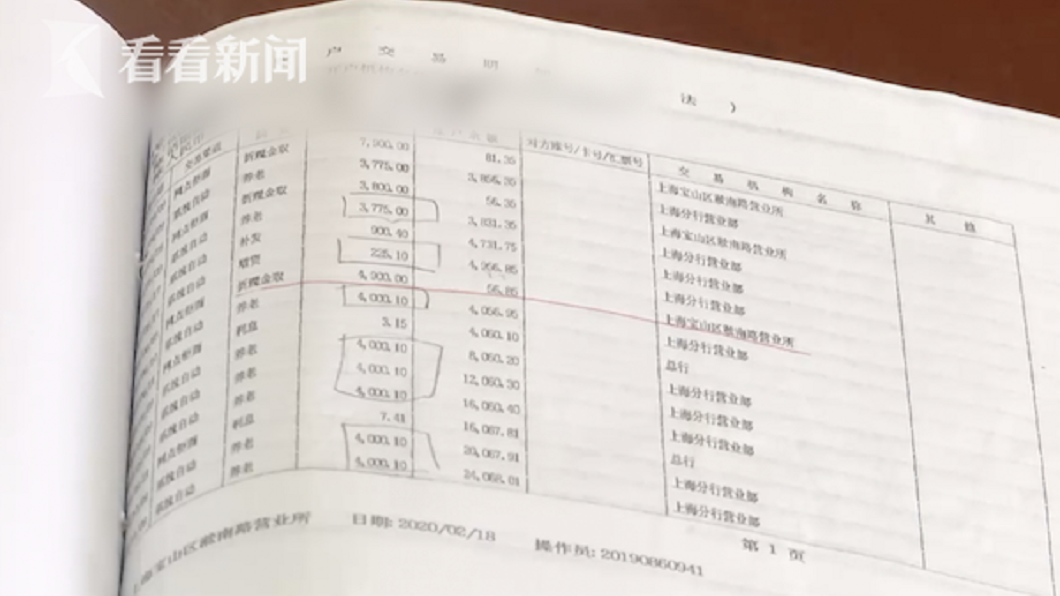 看看新闻
户 交 易 明
法 )
人民币
交易渠道 对方账号/卡号/汇票号 交 易 机 构 名 称 其 他
网点柜面 折现金取 7,900.00 81.35 上海宝山区淞南路营业所
系统自动 养老 3,775.00 3,856.35 上海分行营业部
网点柜面 折现金取 3,800.00 56.35 上海宝山区淞南路营业所
系统自动 养老 3,775.00 3,831.35 上海分行营业部
系统自动 补发 900.40 4,731.75 上海分行营业部
系统自动 增资 225.10 4,956.85 上海分行营业部
网点柜面 折现金取 4,900.00 56.85 上海宝山区淞南路营业所
系统自动 养老 4,000.10 4,056.95 上海分行营业部
网点柜面 利息 3.15 4,060.10 总行
系统自动 养老 4,000.10 8,060.20 上海分行营业部
系统自动 养老 4,000.10 12,060.30 上海分行营业部
系统自动 养老 4,000.10 16,060.40 上海分行营业部
网点柜面 利息 7.41 16,067.81 总行
系统自动 养老 4,000.10 20,067.91 上海分行营业部
系统自动 养老 4,000.10 24,068.01 上海分行营业部
宝山区淞南路营业所 日期: 2020/02/18 操作员: 20190860941 第 1 页